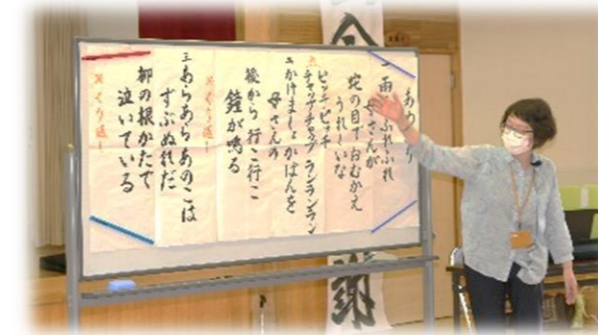 あめふり
雨 ふれふれ
母さんが
蛇の目で おむかえ
うれしいな
※
ピッチピッチ
チャップチャップ ランランラン
二 かけましょ かばんを
母さんの
後から 行こ行こ
鐘が鳴る
※くり返し
三 あらあら あのこは
ずぶぬれだ
柳の根かたで
泣いている
※くり返し